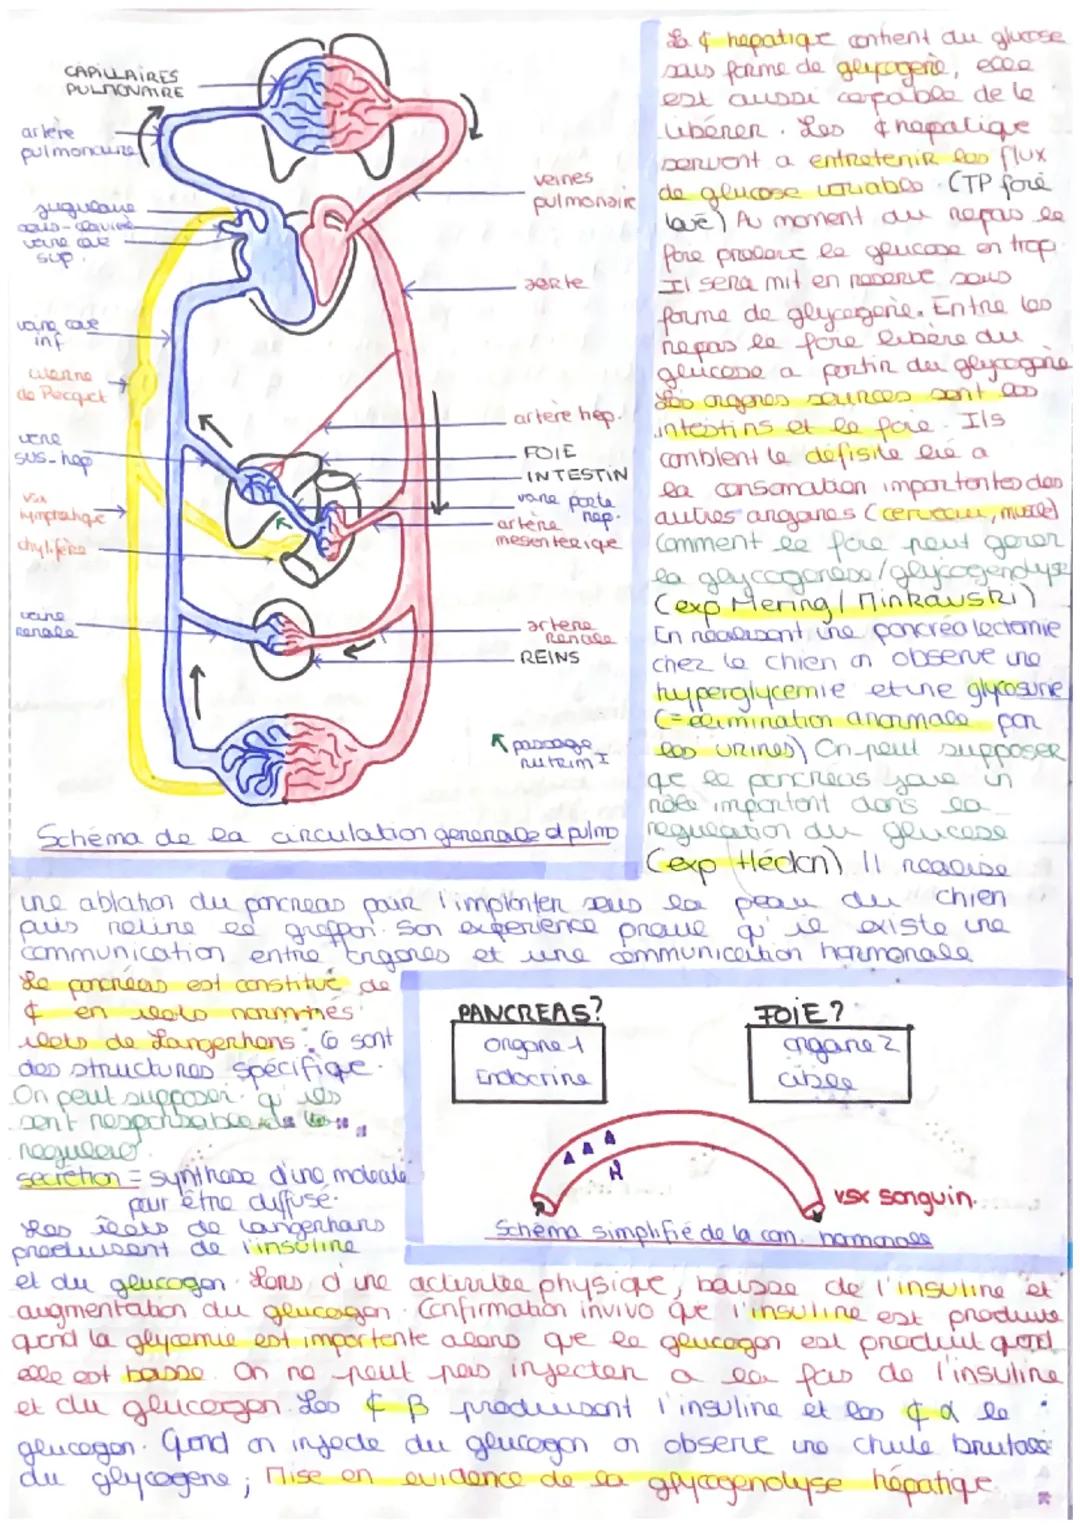 CAPILLAIRES
PULMONAIRE
artère
pulmonaire
jugulaire
sous-clavière
veine cave
sup.
veine cave
inf
citerne
de Pecquet
veine
sus-hep
vsx
lymphatique
chylifère
veine
renale
veines
pulmonaire
aorte
artère hep.
FOIE
INTESTIN
veine porte
hep.
artère
mesenterique
artere
Renale
REINS
passage
nutrim I
Schéma de la circulation generale et pulmo
La ¢ hepatique contient du glucose
sous forme de glycogène, elle
est aussi capable de le
liberer. Les ¢ hepatique
servent a entretenir les flux
de glucose variable (TP foie
lavé) Au moment du repas le
foie prelève le glucose en trop.
Il sera mit en reserve sous
forme de glycogène. Entre les
repas le foie libère du
glucose a partir du glycogène
Les organes sources sont les
intestins et le foie. Ils
comblent le défisite lié a
la consomation importentes des
autres organes (cerveau, muscle)
Comment le foie peut gerer
la glycogenese/glycogenolyse
(exp Mering/Minkowski)
En réalisant une pancréalectomie
chez le chien on observe une
hyperglycemie et une glycosurie
(= elimination anormale par
les urines) On peut supposer
que le pancréas joue un
rôle important dans la
regulation du glucose
(exp Hédon) Il realise
une ablation du pancreas pour l'implanter sous la peau du chien
puis retire le greffon. Son experience prouve qu'il existe une
communication entre organes et une communication hormonale
Le pancréas est constitué de
¢ en ilots nommés
ilots de Langerhans. Ce sont
des structures spécifique.
On peut supposer qu'ils
sont responsable de la
regulero
secretion = synthese d'une molecule
pour être diffusé.
Les îlots de Langerhans
produisent de l'insuline
PANCREAS?
organe 1
Endocrine
FOIE?
organe 2
cible
H
vsx sanguin.
Schéma simplifié de la com. hormonale
et du glucagon. Lors d'une activitée physique, baisse de l'insuline et
augmentation du glucagon. Confirmation invivo que l'insuline est produite
quand la glycemie est importente alors que le glucagon est produit quand
elle est basse. On ne peut pas injecter a la fois de l'insuline
et du glucagon. Les ¢ β produisent l'insuline et les ¢ α le
glucagon. Quand on injecte du glucagon on observe une chute brutale
du glycogene; Mise en evidence de la glycogenolyse hépatique.